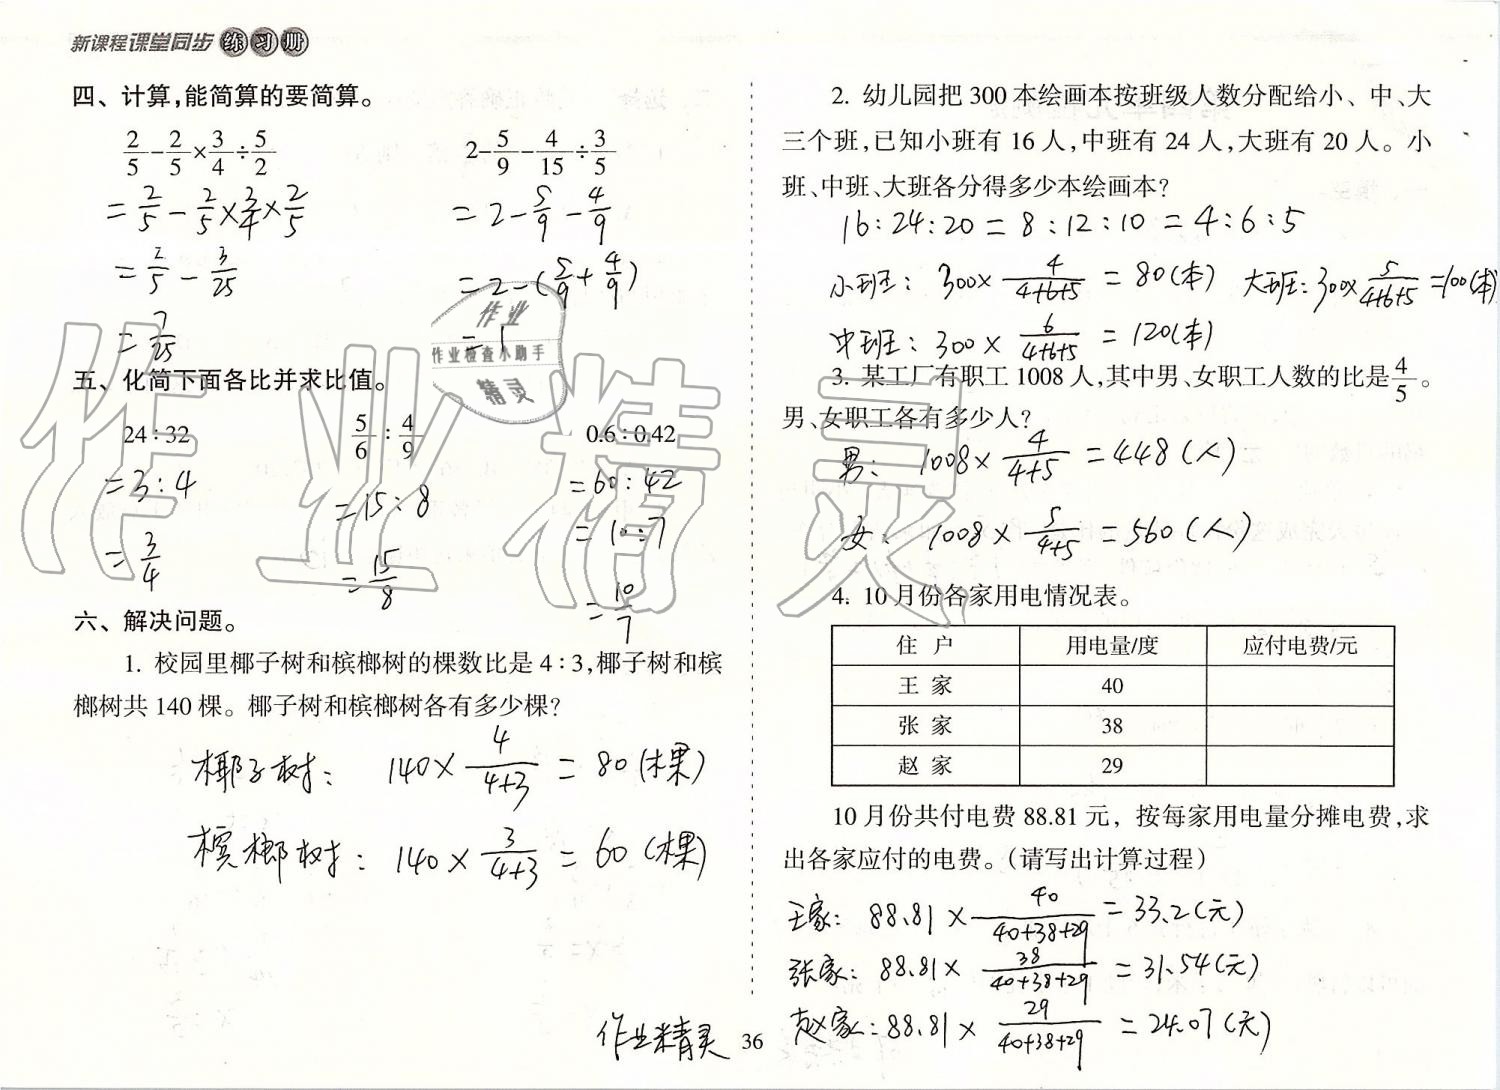 新课程课堂同步练习册
四、计算,能简算的要简算。
2/5-2/5×3/4÷5/2
=2/5-2/5×3/4×2/5
=2/5-3/25
=7/25
2-5/9-4/15÷3/5
=2-5/9-4/9
=2-(5/9+4/9)
=1
作业
作业检查小助手
精灵
五、化简下面各比并求比值。
24:32
=3:4
=3/4
5/6:4/9
=15:8
=15/8
0.6:0.42
=60:42
=10:7
=10/7
六、解决问题。
1. 校园里椰子树和槟榔树的棵数比是4:3,椰子树和槟
榔树共140棵。椰子树和槟榔树各有多少棵?
椰子树: 140×4/(4+3)=80(棵)
槟榔树: 140×3/(4+3)=60(棵)
2. 幼儿园把300本绘画本按班级人数分配给小、中、大
三个班,已知小班有16人,中班有24人,大班有20人。小
班、中班、大班各分得多少本绘画本?
16:24:20=8:12:10=4:6:5
小班: 300×4/(4+6+5)=80(本) 大班:300×5/(4+6+5)=100(本)
中班: 300×6/(4+6+5)=120(本)
3. 某工厂有职工1008人,其中男、女职工人数的比是4/5。
男、女职工各有多少人?
男: 1008×4/(4+5)=448(人)
女: 1008×5/(4+5)=560(人)
4. 10月份各家用电情况表。
住 户 用电量/度 应付电费/元
王 家 40
张 家 38
赵 家 29
10月份共付电费88.81元,按每家用电量分摊电费,求
出各家应付的电费。(请写出计算过程)
王家: 88.81×40/(40+38+29)=33.2(元)
张家: 88.81×38/(40+38+29)=31.54(元)
赵家:88.81×29/(40+38+29)=24.07(元)
作业精灵
36
作业精灵